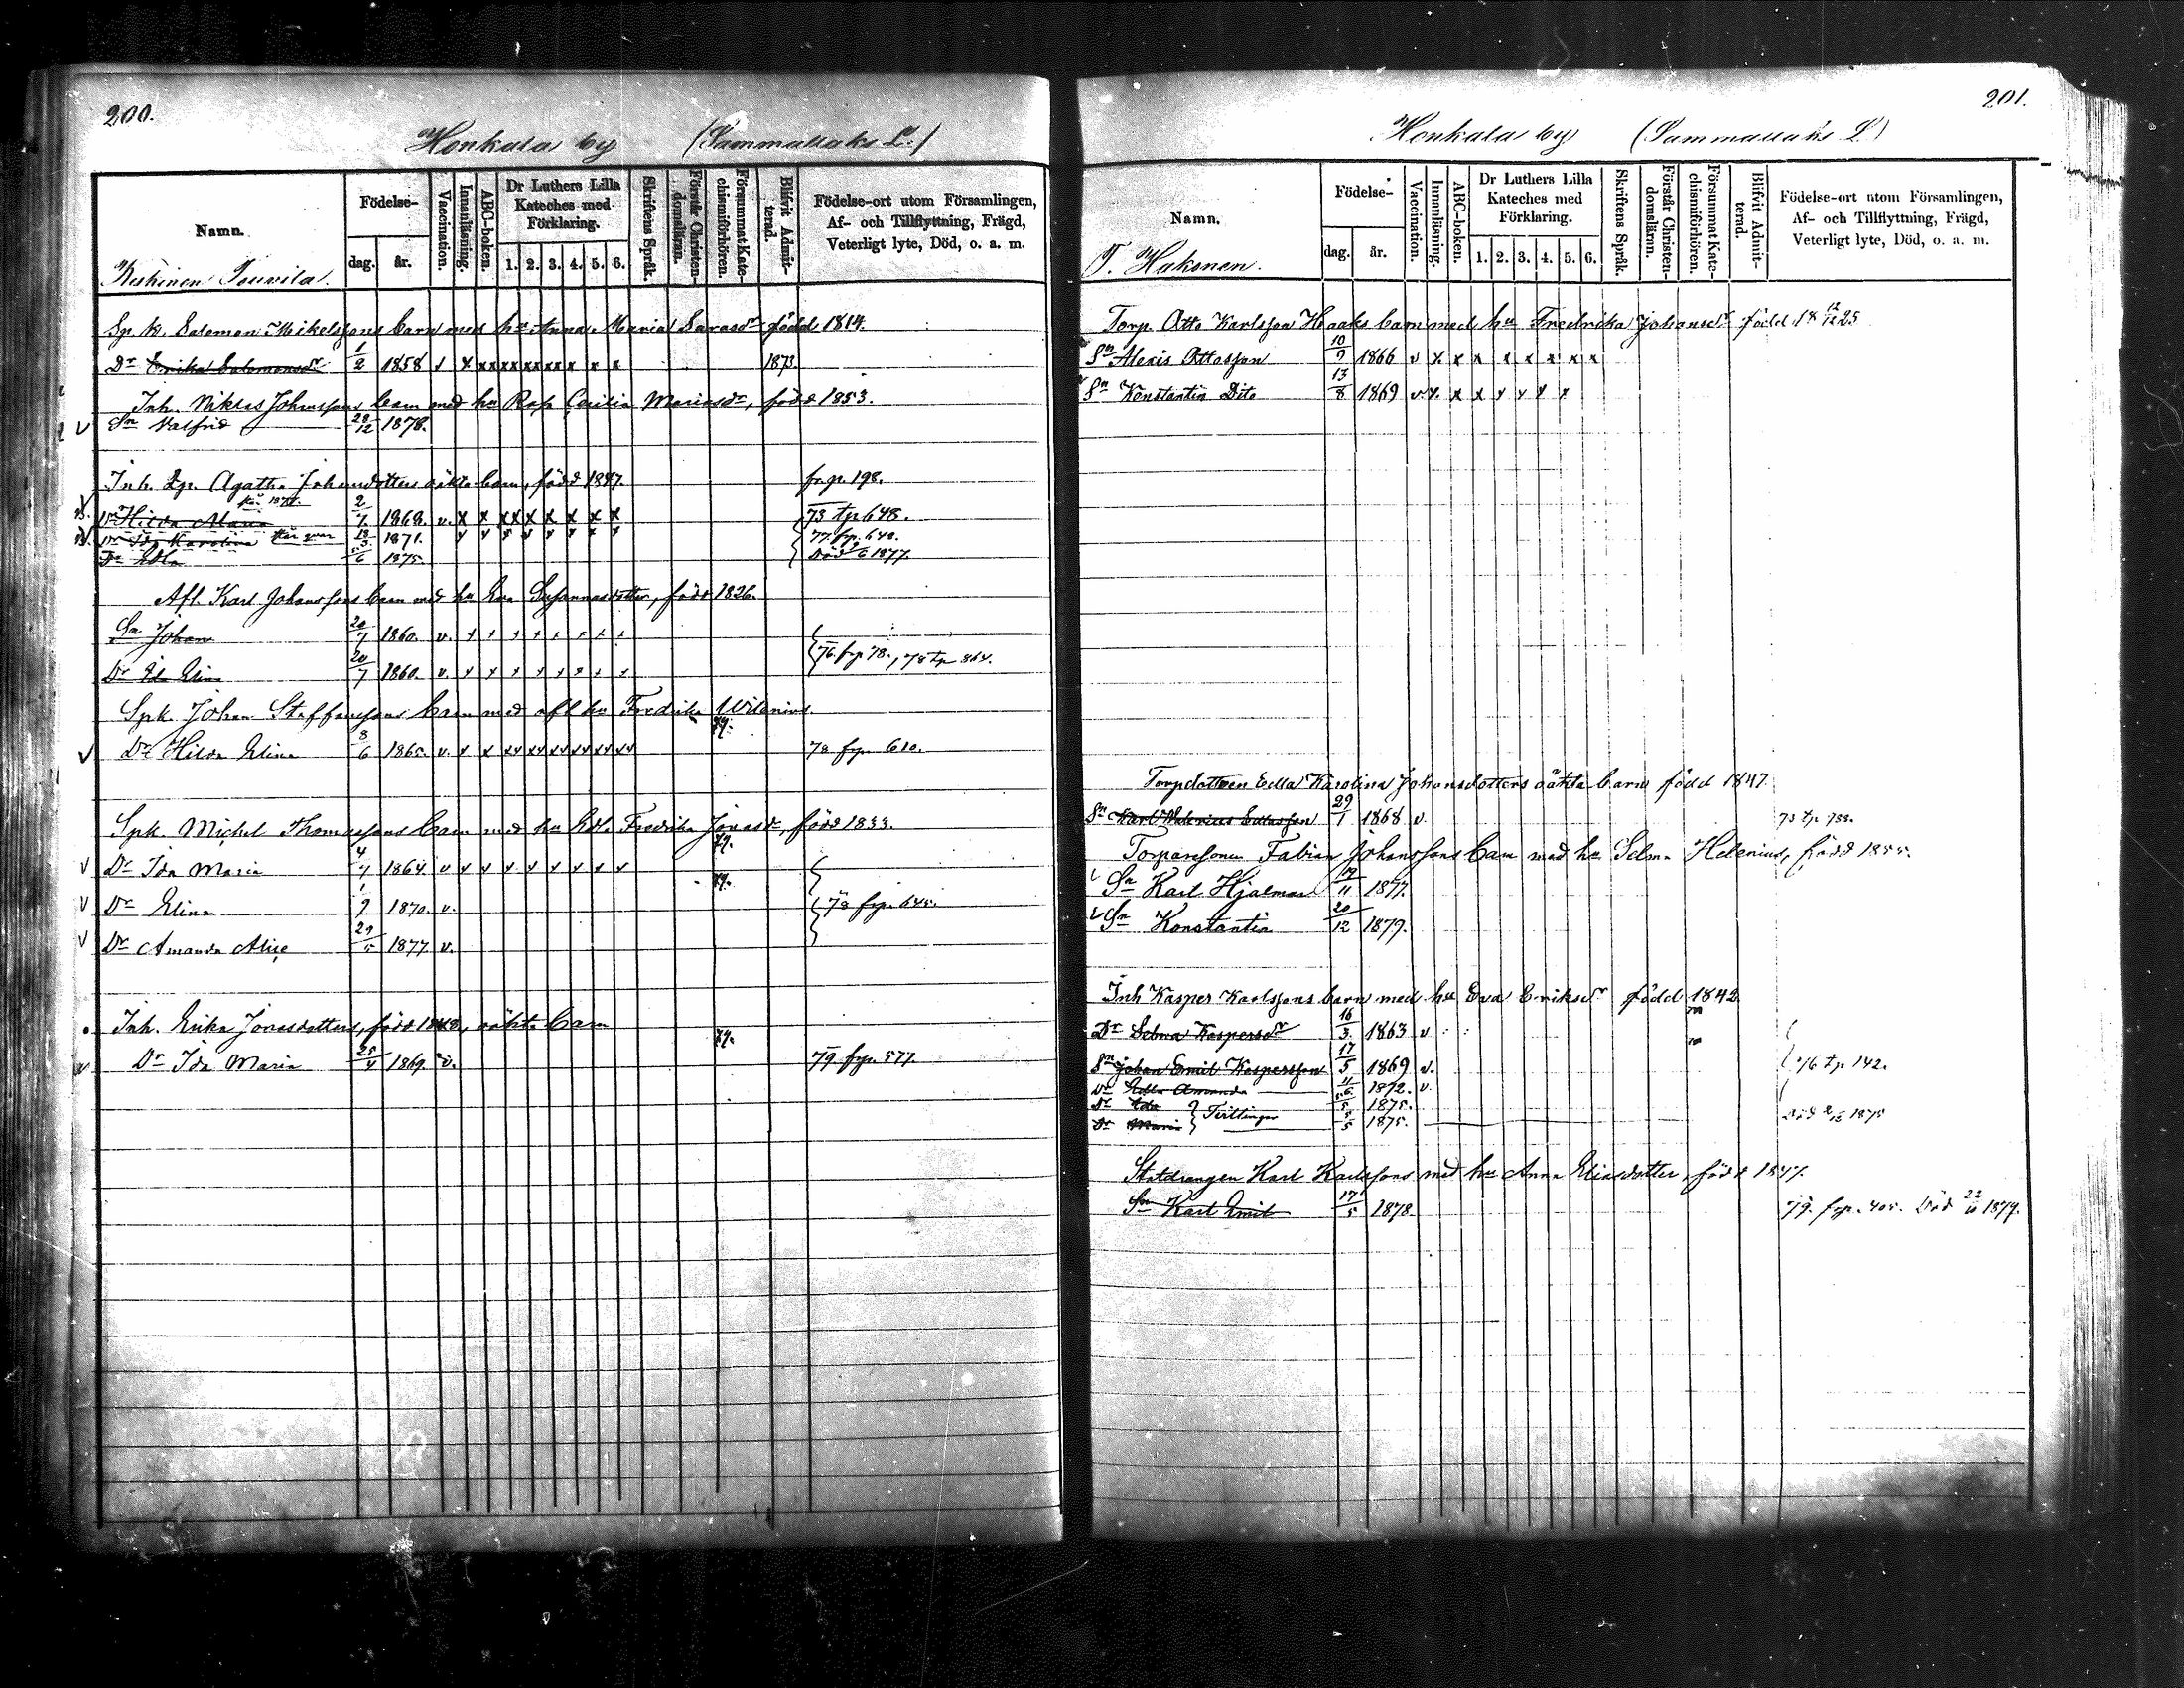 200.
Honkala by (Sammallaks L.)
Namn.
Födelse-
dag.
år.
Vaccination.
Innanläsning.
ABC-boken.
Dr Luthers Lilla Kateches med Förklaring.
1. 2. 3. 4. 5. 6.
Skriftens Språk.
Förstår Christendomslärn.
Försummat Katechismiförhören.
Blifvit Admitterad.
Födelse-ort utom Församlingen, Af- och Tillflyttning, Frägd, Veterligt lyte, Död, o. a. m.
Keskinen Jouvila.
Sp. k. Salomon Mikelssons barn med hu Anna Maria Sarasdr född 1814.
Dr Erika Salomonsdr 1/2 1858 v x xx xx xx xx x x x 1873.
Inh. Niklas Johanssons barn med hu Rosa Cecilia Mariasdr, född 1853.
v Sn Valfrid 22/12 1878.
Inh. Lp. Agatha Johansdotters oäkta barn, född 1847. fr. p. 198.
Dr Hilda Maria 2/7 1868. v. x x xx x x x x x 73 tp 648.
Dr Ida Karolina 13/3 1871. 77. fr p. 648.
Dr Edla 5/6 1875. Död 1877.
Afl. Karl Johanssons barn med hu Eva Susannasdotter, född 1826.
Sn Johan 20/7 1860. v. x x x x x x x x
Dr Ida Elina 20/7 1860. v. x x x x x x x x 76. frp 78., 78 tp 864.
Spk. Johan Staffanssons barn med afl hu Fredrika Wilenius.
79.
v Dr Hilda Elina 8/6 1865. v. x x xx xx xx xx xx xx 78 frp. 610.
Spk. Michel Thomassons barn med hu Edla Fredrika Jonasdr, född 1833.
79.
v Dr Ida Maria 4/7 1864 v v v v v v v v v
79.
v Dr Elina 1/7 1870. v. 78 frp. 645.
v Dr Amanda Alice 29/5 1877 v.
Inh. Erika Jonasdotters, född 1842, oäkta barn
79.
v Dr Ida Maria 25/4 1869. v. 79 frp. 577.
201.
Honkala by (Sammallaks L)
Namn.
Födelse-
dag.
år.
Vaccination.
Innanläsning.
ABC-boken.
Dr Luthers Lilla Kateches med Förklaring.
1. 2. 3. 4. 5. 6.
Skriftens Språk.
Förstår Christendomslärn.
Försummat Katechismiförhören.
Blifvit Admitterad.
Födelse-ort utom Församlingen, Af- och Tillflyttning, Frägd, Veterligt lyte, Död, o. a. m.
T. Hakonen.
Torp. Otto Karlsson Haaks barn med hu Fredrika Johansdr född 18 12/12 25
Sn Alexis Ottosson 10/9 1866 v x x x x x x x x
Sn Konstantin Dito 13/8 1869 v. x. x x x x x x
Torpdottern Edla Karolina Johansdotters oäkta barn född 1847.
Sn Karl Valerius Edlasson 29/1 1868 v. 73 tp 733.
Torparesonen Fabian Johanssons barn med hu Selma Helenius, född 1855.
Sn Karl Hjalmar 19/11 1877.
Sn Konstantin 20/12 1879.
Inh Kasper Karlssons barn med hu Eva Eriksdr född 1842
Dr Selma Kaspersdr 16/3. 1863 v
Sn Johan Emil Kaspersson 17/5 1869 v. 76 tp 142.
Dr Edla Amanda 11/5 1872. v.
Dr Ida } Tvillingar 5/5 1875.
Dr Maria 5/5 1875. Död 1875
Statdrängen Karl Karlssons med hu Anna Eliasdotter, född 1847.
Sn Karl Emil 17/5 1878 79. frp. 405. Död 22/10 1879.